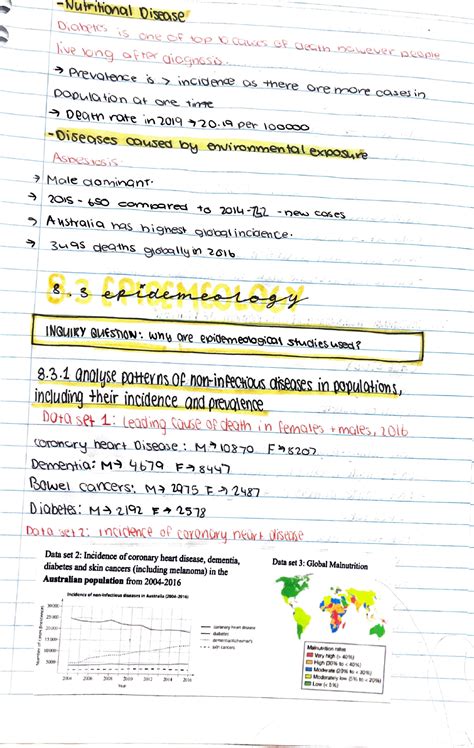 -Nutritional Disease
Diabetes is one of top 10 causes of death however people
live long after diagnosis.
→ Prevalence is > incidence as there are more cases in
population at one time
→ Death rate in 2019 → 20.19 per 100000
-Diseases caused by environmental exposure
Asbestosis
→ Male dominant.
→ 2015 - 650 compared to 2014-762 - new cases
→ Australia has highest global incidence.
→ 3495 deaths globally in 2016
8.3 EPIDEMEOLOGY
8.3 epidemeology
INQUIRY QUESTION: Why are epidemeological studies used?
8.3.1 analyse patterns of non-infectious diseases in populations,
including their incidence and prevalence
Data set 1: Leading cause of death in females + males, 2016
coronary heart Disease: M→ 10870 F→ 8207
Dementia: M→ 4679 F→ 8447
Bowel cancers: M→ 2975 F→ 2487
Diabetes: M→ 2192 F→ 2578
Data set 2: incidence of coronary heart disease
Data set 2: Incidence of coronary heart disease, dementia,
diabetes and skin cancers (including melanoma) in the
Australian population from 2004-2016
Data set 3: Global Malnutrition
Incidence of non-infectious diseases in Australia (2004-2016)
30 000
25 000
20 000
15 000
10 000
5000
2004 2006 2008 2010 2012 2014 2016
Year
coronary heart disease
diabetes
skin cancers
Malnutrition rates
Very high (> 40%)
High (30% to < 40%)
Moderate (20% to < 30%)
Moderately low (5% to < 20%)
Low (< 5%)